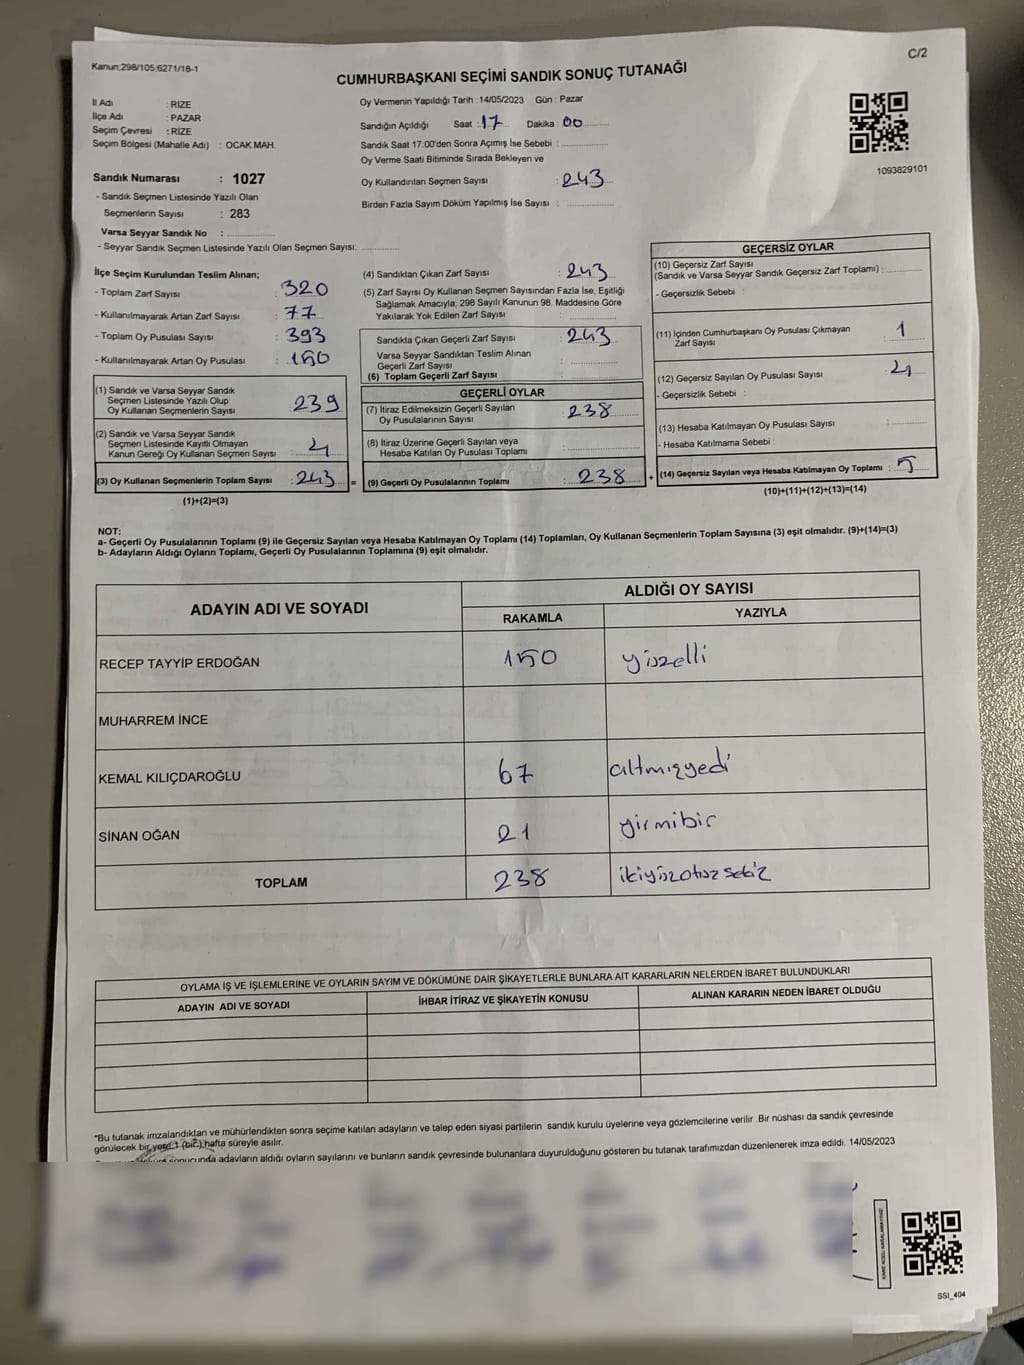 Kanun;298/105;6271/18-1
C/2
CUMHURBAŞKANI SEÇİMİ SANDIK SONUÇ TUTANAĞI
İl Adı : RİZE
İlçe Adı : PAZAR
Seçim Çevresi : RİZE
Seçim Bölgesi (Mahalle Adı) : OCAK MAH.
Sandık Numarası : 1027
- Sandık Seçmen Listesinde Yazılı Olan
Seçmenlerin Sayısı : 283
Varsa Seyyar Sandık No : ..............
- Seyyar Sandık Seçmen Listesinde Yazılı Olan Seçmen Sayısı: ............
Oy Vermenin Yapıldığı Tarih : 14/05/2023 Gün : Pazar
Sandığın Açıldığı Saat : 17 Dakika : 00
Sandık Saat 17:00'den Sonra Açımış İse Sebebi : ..............
Oy Verme Saati Bitiminde Sırada Bekleyen ve
Oy Kullandırılan Seçmen Sayısı : 243
Birden Fazla Sayım Döküm Yapılmış İse Sayısı : ..............
1093829101
İlçe Seçim Kurulundan Teslim Alınan;
- Toplam Zarf Sayısı : 320
- Kullanılmayarak Artan Zarf Sayısı : 77
- Toplam Oy Pusulası Sayısı : 393
- Kullanılmayarak Artan Oy Pusulası : 150
(1) Sandık ve Varsa Seyyar Sandık
Seçmen Listesinde Yazılı Olup
Oy Kullanan Seçmenlerin Sayısı : 239
(2) Sandık ve Varsa Seyyar Sandık
Seçmen Listesinde Kayıtlı Olmayan
Kanun Gereği Oy Kullanan Seçmen Sayısı : 4
(3) Oy Kullanan Seçmenlerin Toplam Sayısı : 243 =
(1)+(2)=(3)
(4) Sandıktan Çıkan Zarf Sayısı : 243
(5) Zarf Sayısı Oy Kullanan Seçmen Sayısından Fazla İse, Eşitliği
Sağlamak Amacıyla; 298 Sayılı Kanunun 98. Maddesine Göre
Yakılarak Yok Edilen Zarf Sayısı : ..............
Sandıkta Çıkan Geçerli Zarf Sayısı : 243
Varsa Seyyar Sandıktan Teslim Alınan
Geçerli Zarf Sayısı : ..............
(6) Toplam Geçerli Zarf Sayısı : ..............
GEÇERLİ OYLAR
(7) İtiraz Edilmeksizin Geçerli Sayılan
Oy Pusulalarının Sayısı : 238
(8) İtiraz Üzerine Geçerli Sayılan veya
Hesaba Katılan Oy Pusulası Toplamı : ..............
(9) Geçerli Oy Pusulalarının Toplamı : 238 +
GEÇERSİZ OYLAR
(10) Geçersiz Zarf Sayısı
(Sandık ve Varsa Seyyar Sandık Geçersiz Zarf Toplamı) : ............
- Geçersizlik Sebebi :
(11) İçinden Cumhurbaşkanı Oy Pusulası Çıkmayan
Zarf Sayısı : 1
(12) Geçersiz Sayılan Oy Pusulası Sayısı : 4
- Geçersizlik Sebebi :
(13) Hesaba Katılmayan Oy Pusulası Sayısı : ............
- Hesaba Katılmama Sebebi :
(14) Geçersiz Sayılan veya Hesaba Katılmayan Oy Toplamı : 5
(10)+(11)+(12)+(13)=(14)
NOT:
a- Geçerli Oy Pusulalarının Toplamı (9) ile Geçersiz Sayılan veya Hesaba Katılmayan Oy Toplamı (14) Toplamları, Oy Kullanan Seçmenlerin Toplam Sayısına (3) eşit olmalıdır. (9)+(14)=(3)
b- Adayların Aldığı Oyların Toplamı, Geçerli Oy Pusulalarının Toplamına (9) eşit olmalıdır.
ADAYIN ADI VE SOYADI ALDIĞI OY SAYISI
RAKAMLA YAZIYLA
RECEP TAYYİP ERDOĞAN 150 yüzelli
MUHARREM İNCE
KEMAL KILIÇDAROĞLU 67 altmışyedi
SİNAN OĞAN 21 yirmibir
TOPLAM 238 ikiyüzotuzsekiz
OYLAMA İŞ VE İŞLEMLERİNE VE OYLARIN SAYIM VE DÖKÜMÜNE DAİR ŞİKAYETLERLE BUNLARA AİT KARARLARIN NELERDEN İBARET BULUNDUKLARI
ADAYIN ADI VE SOYADI İHBAR İTİRAZ VE ŞİKAYETİN KONUSU ALINAN KARARIN NEDEN İBARET OLDUĞU
*Bu tutanak imzalandıktan ve mühürlendikten sonra seçime katılan adayların ve talep eden siyasi partilerin sandık kurulu üyelerine veya gözlemcilerine verilir. Bir nüshası da sandık çevresinde
görülecek bir yere 1 (bir) hafta süreyle asılır.
sonucunda adayların aldığı oyların sayılarını ve bunların sandık çevresinde bulunanlara duyurulduğunu gösteren bu tutanak tarafımızdan düzenlenerek imza edildi. 14/05/2023
SSI_404